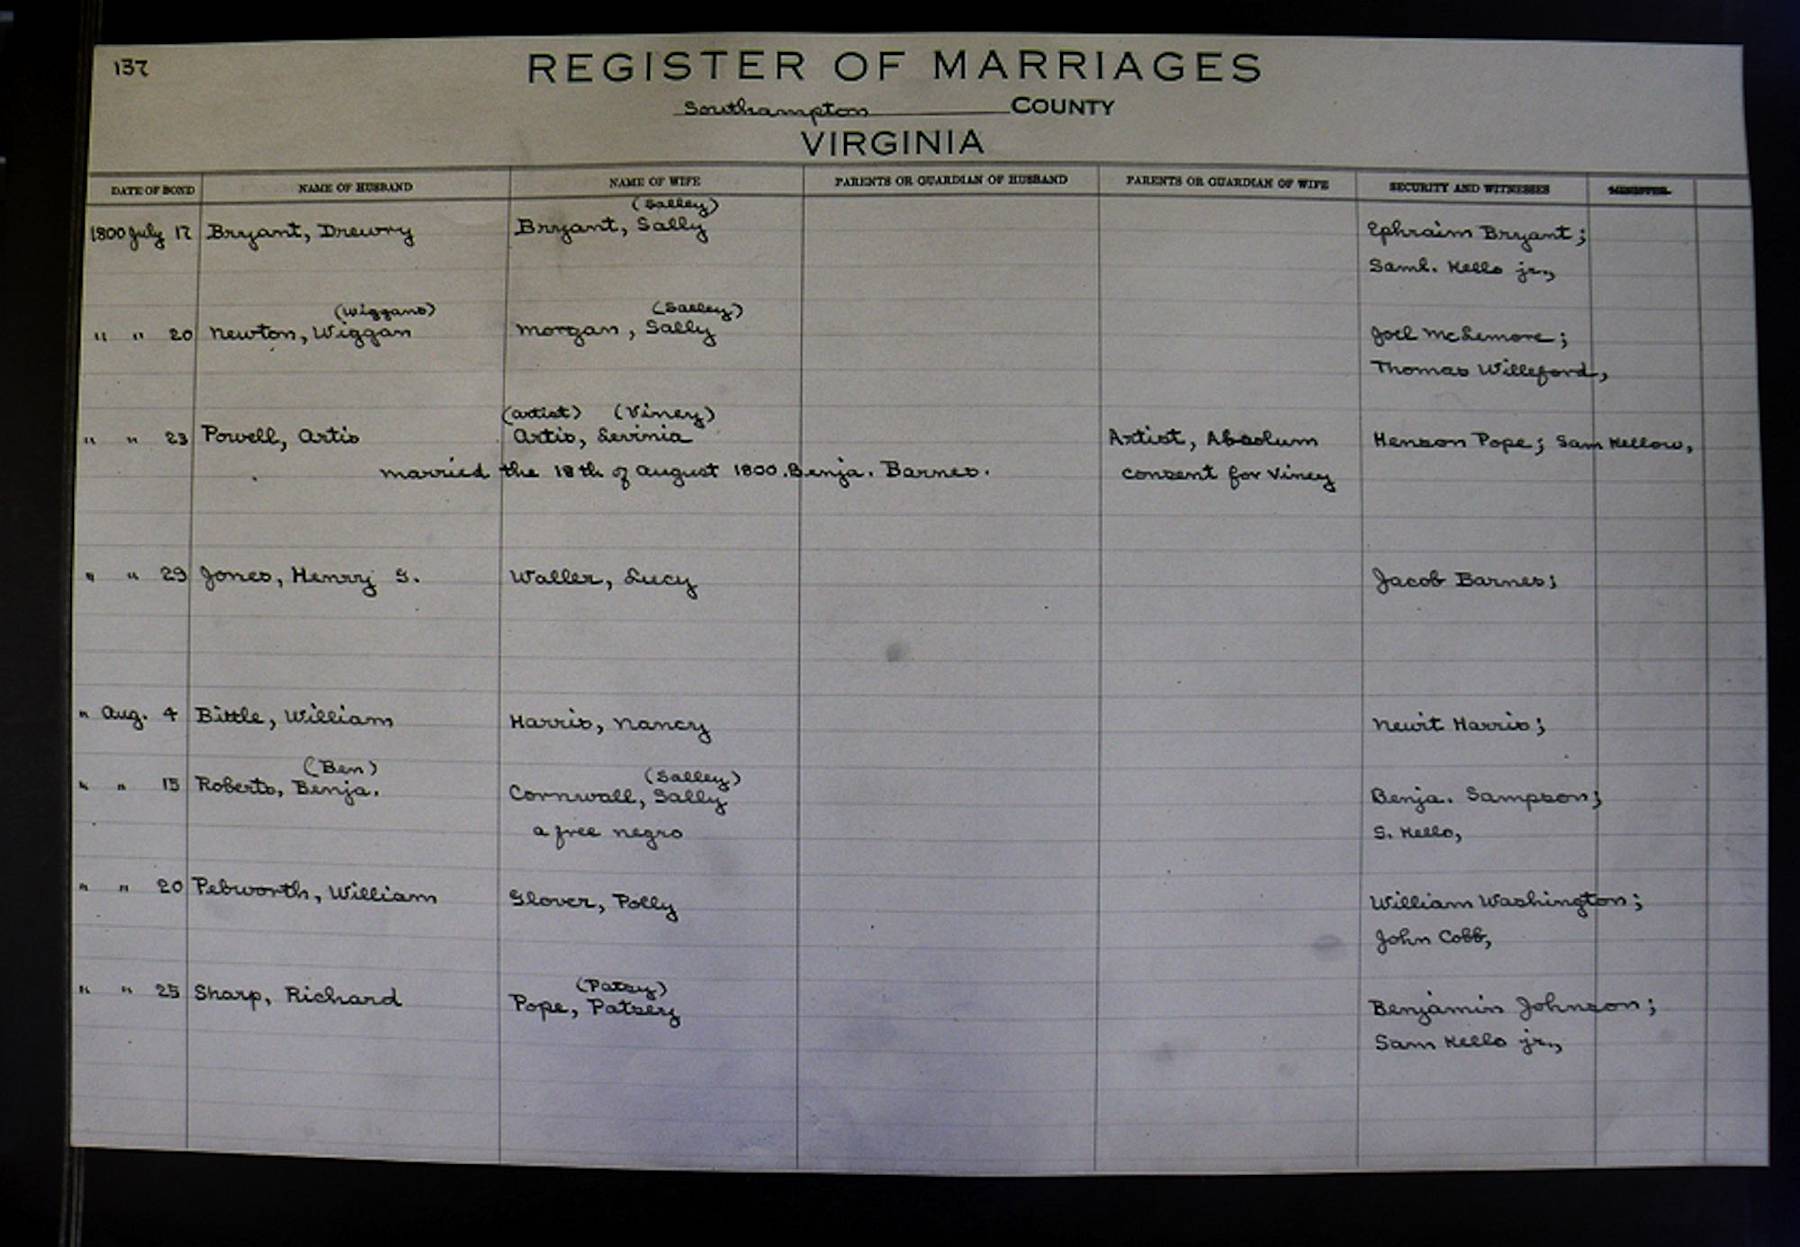 137
REGISTER OF MARRIAGES
Southampton COUNTY
VIRGINIA
DATE OF BOND NAME OF HUSBAND NAME OF WIFE PARENTS OR GUARDIAN OF HUSBAND PARENTS OR GUARDIAN OF WIFE SECURITY AND WITNESSES MINISTER
(Salley)
1800 July 17 Bryant, Drewry Bryant, Sally Ephraim Bryant;
Saml. Kello jr.,
(Wiggans) (Salley)
" " 20 Newton, Wiggan Morgan, Sally Joel McLemore;
Thomas Willeford,
(Artist) (Viney)
" " 23 Powell, Artis Artis, Levinia Artist, Absolum Henson Pope; Sam Kellow,
married the 18th of August 1800. Benja. Barnes. consent for Viney
" " 29 Jones, Henry G. Waller, Lucy Jacob Barnes;
" Aug. 4 Bittle, William Harris, Nancy Newit Harris;
(Ben) (Salley)
" " 15 Roberts, Benja. Cornwall, Sally Benja. Sampson;
a free negro S. Kello,
" " 20 Pebworth, William Glover, Polly William Washington;
John Cobb,
(Patsy)
" " 25 Sharp, Richard Pope, Patsey Benjamin Johnson;
Sam Kello jr.,